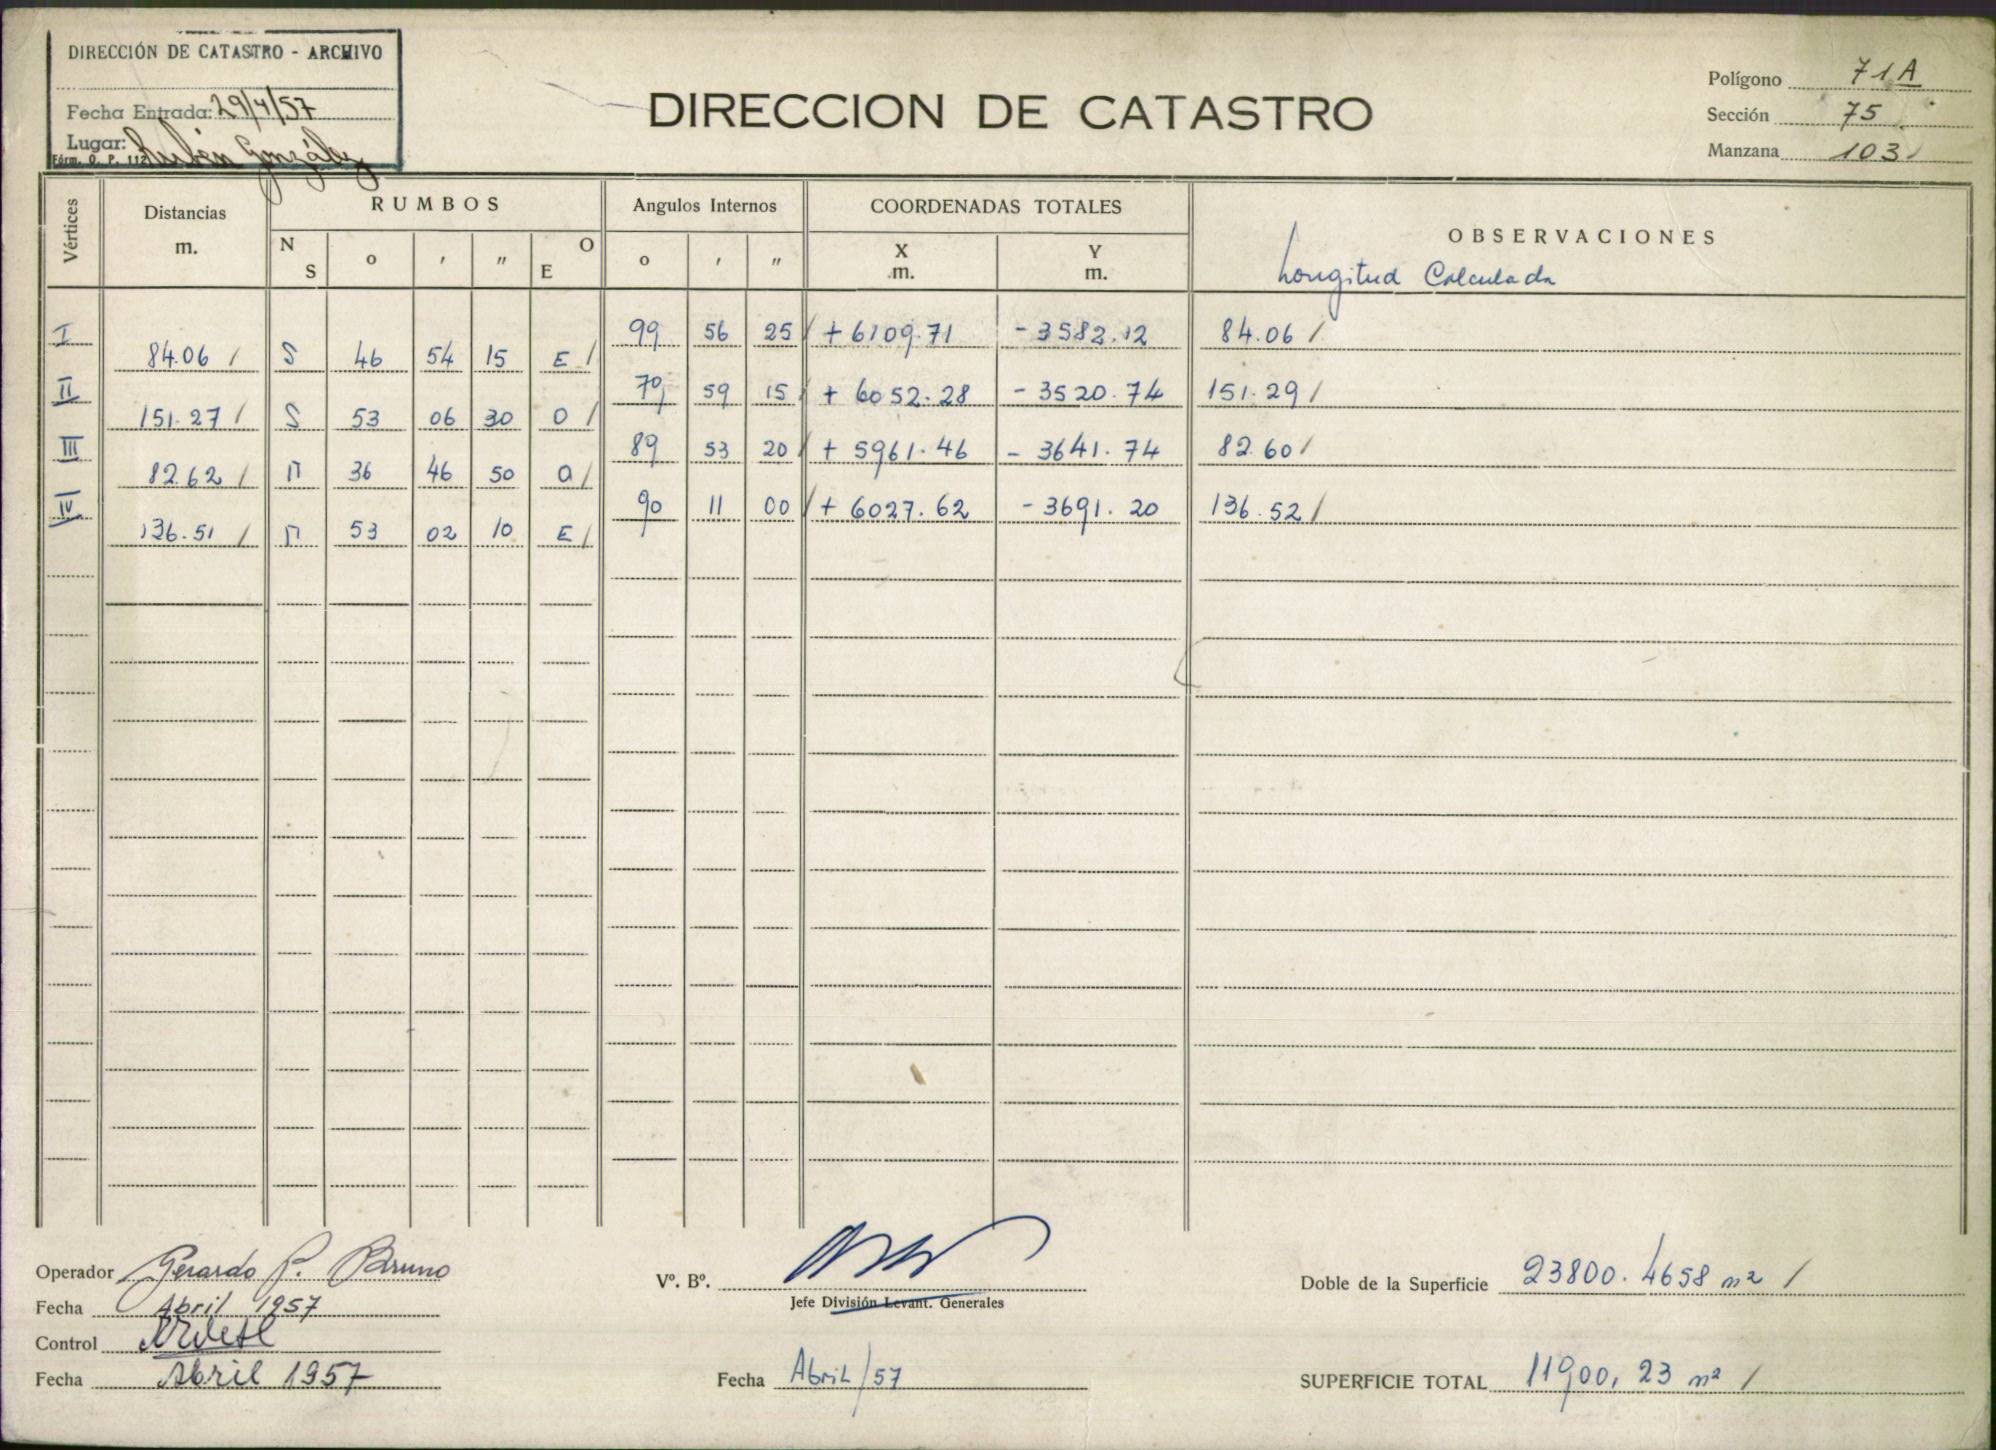 DIRECCIÓN DE CATASTRO - ARCHIVO
Fecha Entrada: 29/4/57
Lugar: Rubén González
Fórm. O. P. 112
DIRECCION DE CATASTRO
Polígono 71A
Sección 75
Manzana 103
Vértices Distancias m. RUMBOS Angulos Internos COORDENADAS TOTALES OBSERVACIONES
N S o ′ ″ O E o ′ ″ X m. Y m. Longitud Calculada
I 99 56 25 + 6109.71 - 3582.12 84.06 /
84.06 / S 46 54 15 E /
II 70 59 15 / + 6052.28 - 3520.74 151.29 /
151.27 / S 53 06 30 O /
III 89 53 20 / + 5961.46 - 3641.74 82.60 /
82.62 / N 36 46 50 O /
IV 90 11 00 / + 6027.62 - 3691.20 136.52 /
136.51 / N 53 02 10 E /
Operador Gerardo P. Bruno
Fecha Abril 1957
Control
Fecha Abril 1957
Vº. Bº.
Jefe División Levant. Generales
Fecha Abril/57
Doble de la Superficie 23800.4658 m² /
SUPERFICIE TOTAL 11900,23 m² /